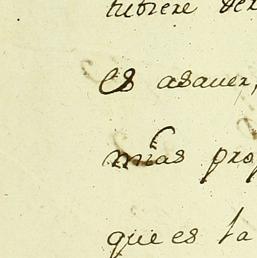 tubiere
es asauer,
mias
que es la